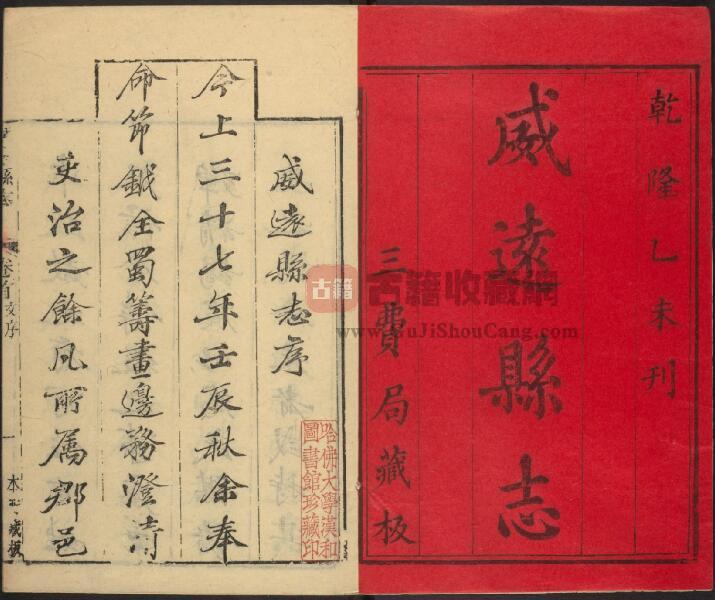 乾隆乙未刊
威遠縣志
三費局藏板
威遠縣志序
今上三十七年壬辰秋余奉
命節鉞全蜀籌畫邊務澄清
吏治之餘凡所属郡邑
哈佛大學漢和
圖書館珍藏印
古籍
古籍收藏網
www.GuJiShouCang.com